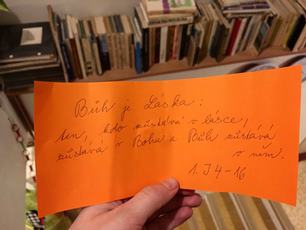 Bůh je Láska:
ten, kdo zůstává v lásce,
zůstává v Bohu a Bůh zůstává
v něm.
1. J 4-16